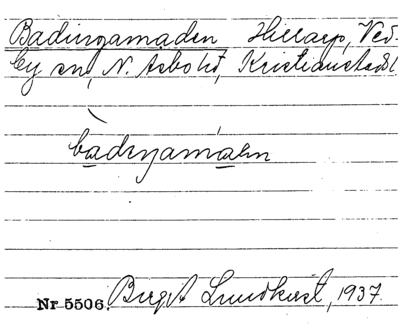 Badingamaden Hillarp, Ved.
by sn, N. Åsbo hd, Kristianstads l
badiŋamaðen
Nr 5506. Birgit Lundkvist, 1937.